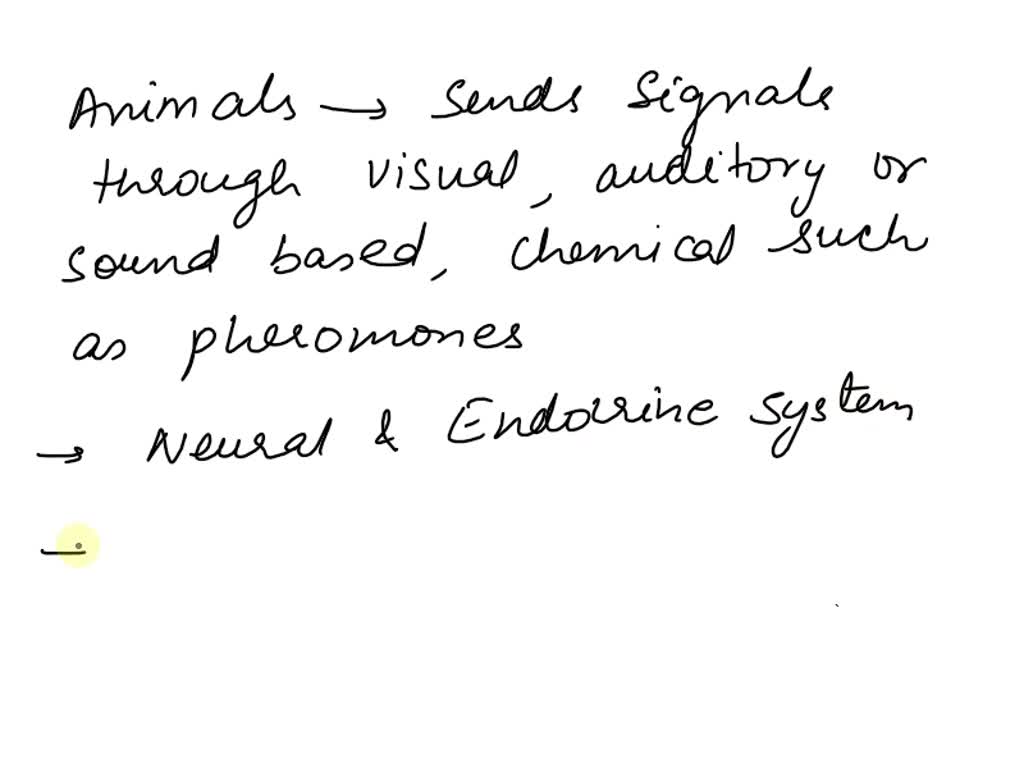 Animals → Sends Signals
through visual, auditory or
sound based, chemical such
as pheromones
→ Neural & Endocrine system